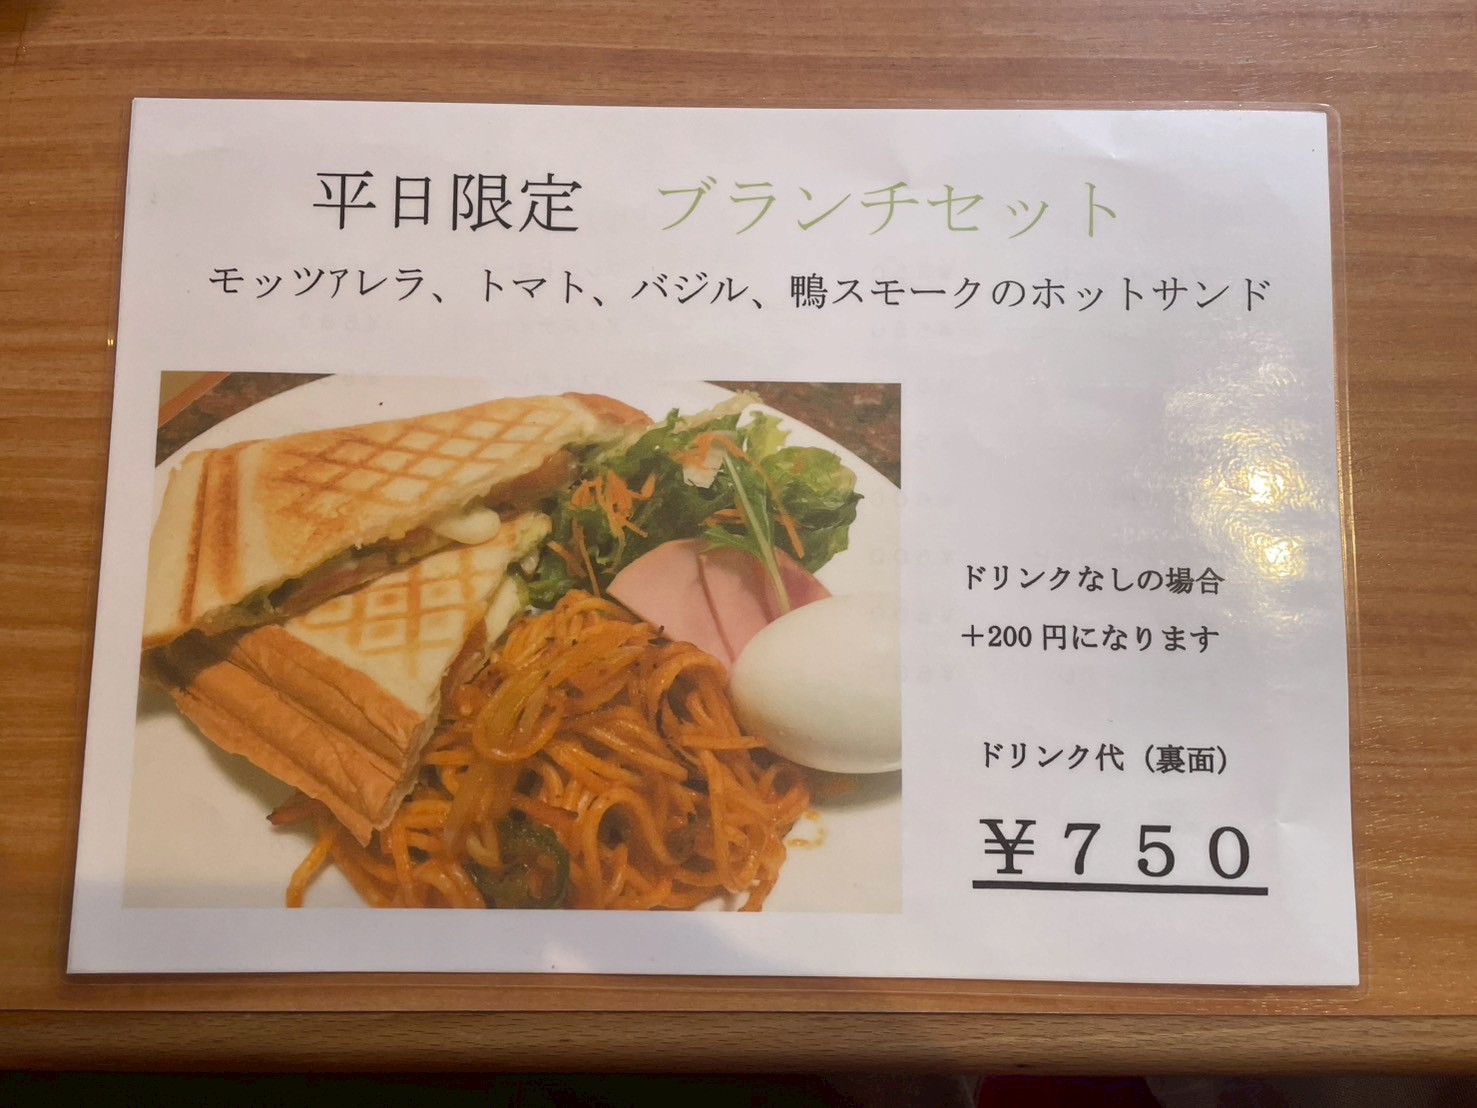 平日限定　ブランチセット
モッツァレラ、トマト、バジル、鴨スモークのホットサンド
ドリンクなしの場合
＋200 円になります
ドリンク代（裏面）
￥７５０